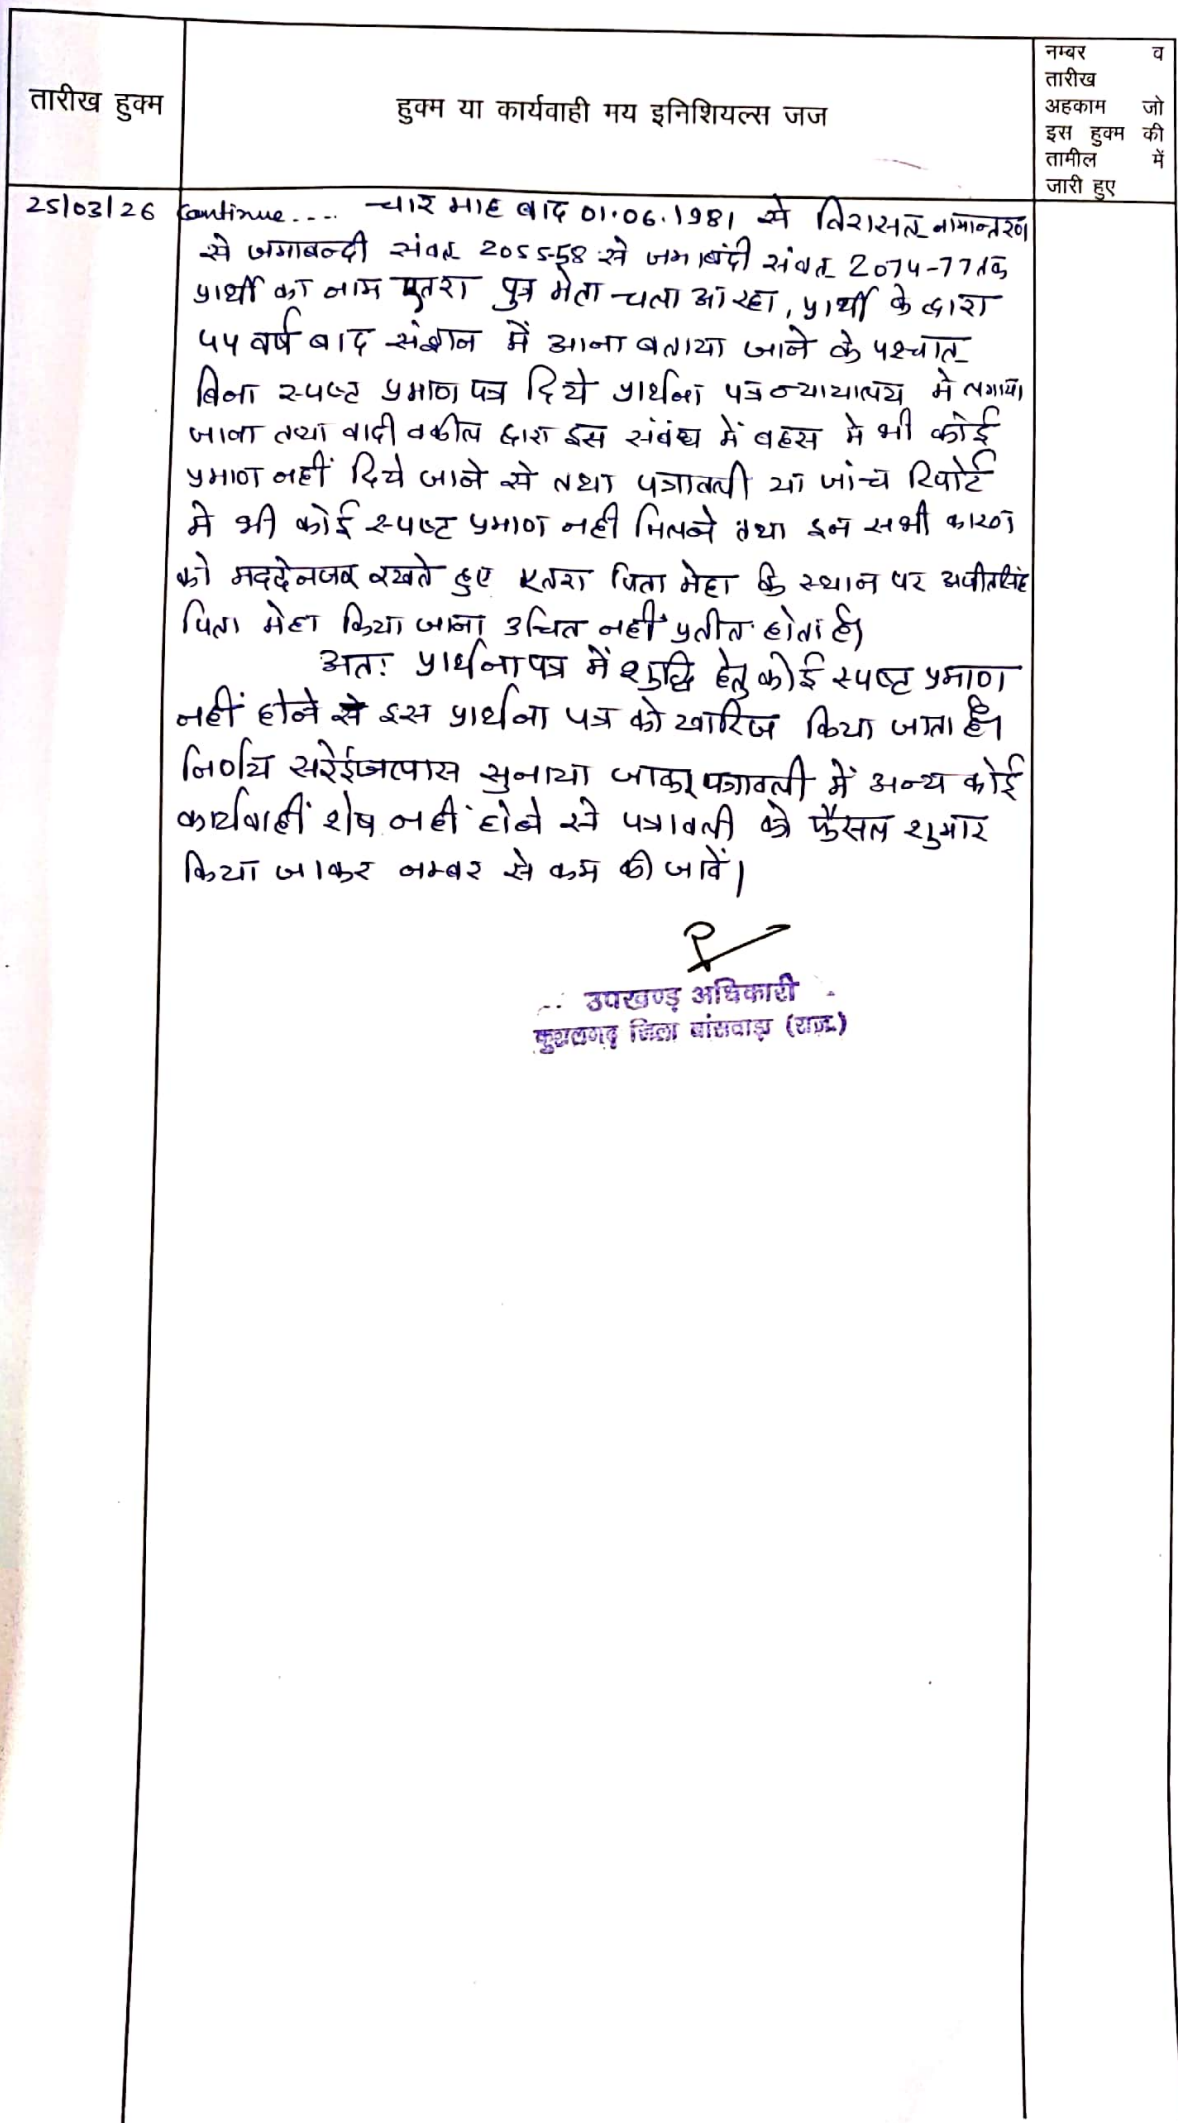 तारीख हुक्म
हुक्म या कार्यवाही मय इनिशियल्स जज
नम्बर व
तारीख
अहकाम जो
इस हुक्म की
तामील में
जारी हुए
25/03/26 Continue.... चार माह बाद 01.06.1981 से विरासत नामान्तरण
से जमाबन्दी संवत 2055-58 से जमाबंदी संवत 2074-77 तक
प्रार्थी का नाम पुत्र चला आ रहा, प्रार्थी के द्वारा
वर्ष बाद संज्ञान में आना बताया जाने के पश्चात
बिना स्पष्ट प्रमाण पत्र दिये प्रार्थना पत्र न्यायालय मे लगाया
जाना तथा वादी वकील द्वारा इस संबंध में बहस मे भी कोई
प्रमाण नहीं दिये जाने से तथा पत्रावली या जांच रिपोर्ट
मे भी कोई स्पष्ट प्रमाण नही मिलने तथा इन सभी कारण
को मददेनजर रखते हुए पिता मेहा के स्थान पर अजीतसिंह
पिता मेहा किया जाना उचित नहीं प्रतीत होता है।
अतः प्रार्थना पत्र में शुद्धि हेतु कोई स्पष्ट प्रमाण
नहीं होने से इस प्रार्थना पत्र को खारिज किया जाता है।
निर्णय सरेईजलास सुनाया जाकर पत्रावली में अन्य कोई
कार्यवाहीं शेष नहीं होने से पत्रावली को फैसल शुमार
किया जाकर नम्बर से कम की जावें।
उपखण्ड अधिकारी
कुशलगढ़ जिला बांसवाड़ा (राज.)